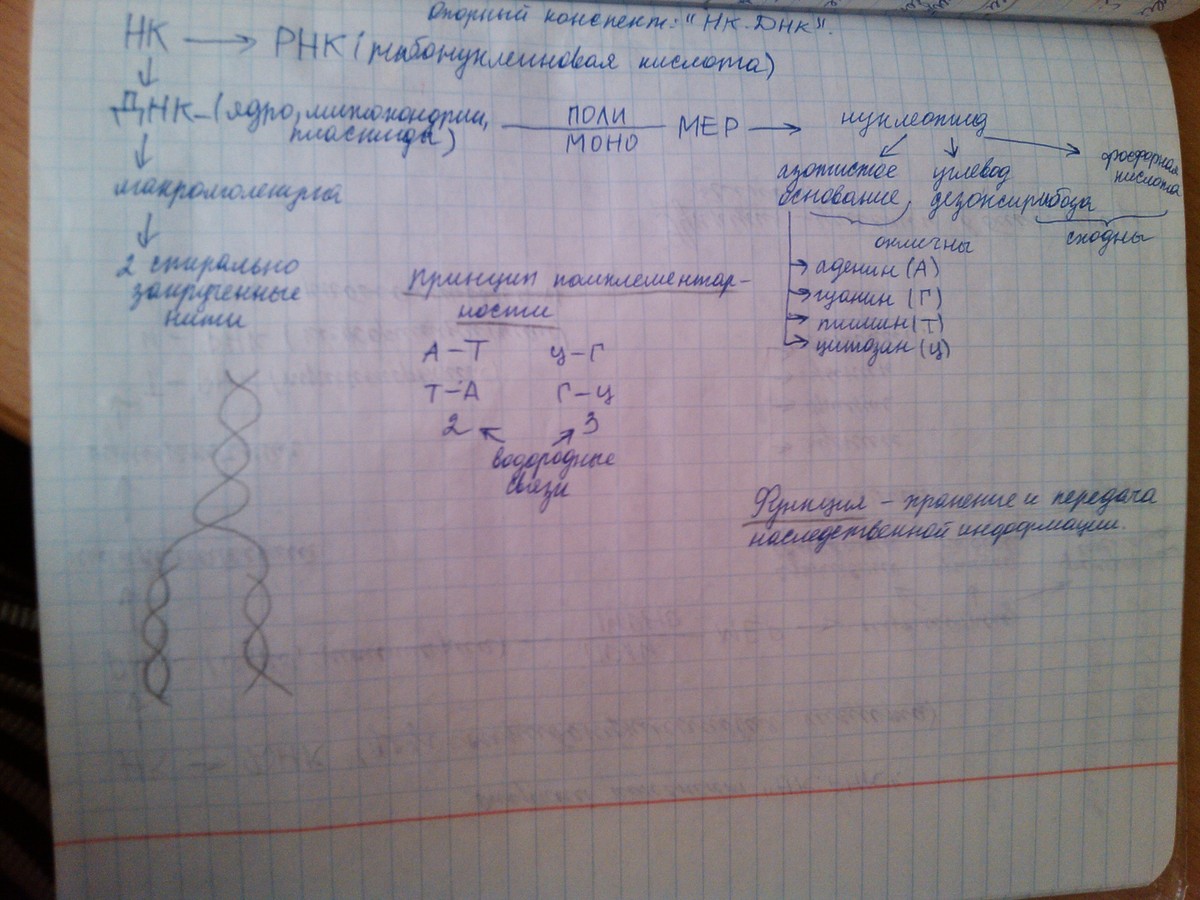 Опорный конспект: "НК. ДНК".
НК → РНК (рибонуклеиновая кислота)
ДНК - (ядро, митохондрии,
пластиды)
ПОЛИ
МОНО
МЕР → нуклеотид
азотистое
основание,
углевод
дезоксирибоза
фосфорная
кислота
отличны
сходны
аденин (А)
гуанин (Г)
тимин (Т)
цитозин (Ц)
макромолекула
2 спирально
закрученные
нити
Принцип комплементар-
ности
А-Т Ц-Г
Т-А Г-Ц
2 3
водородные
связи
Функция - хранение и передача
наследственной информации.